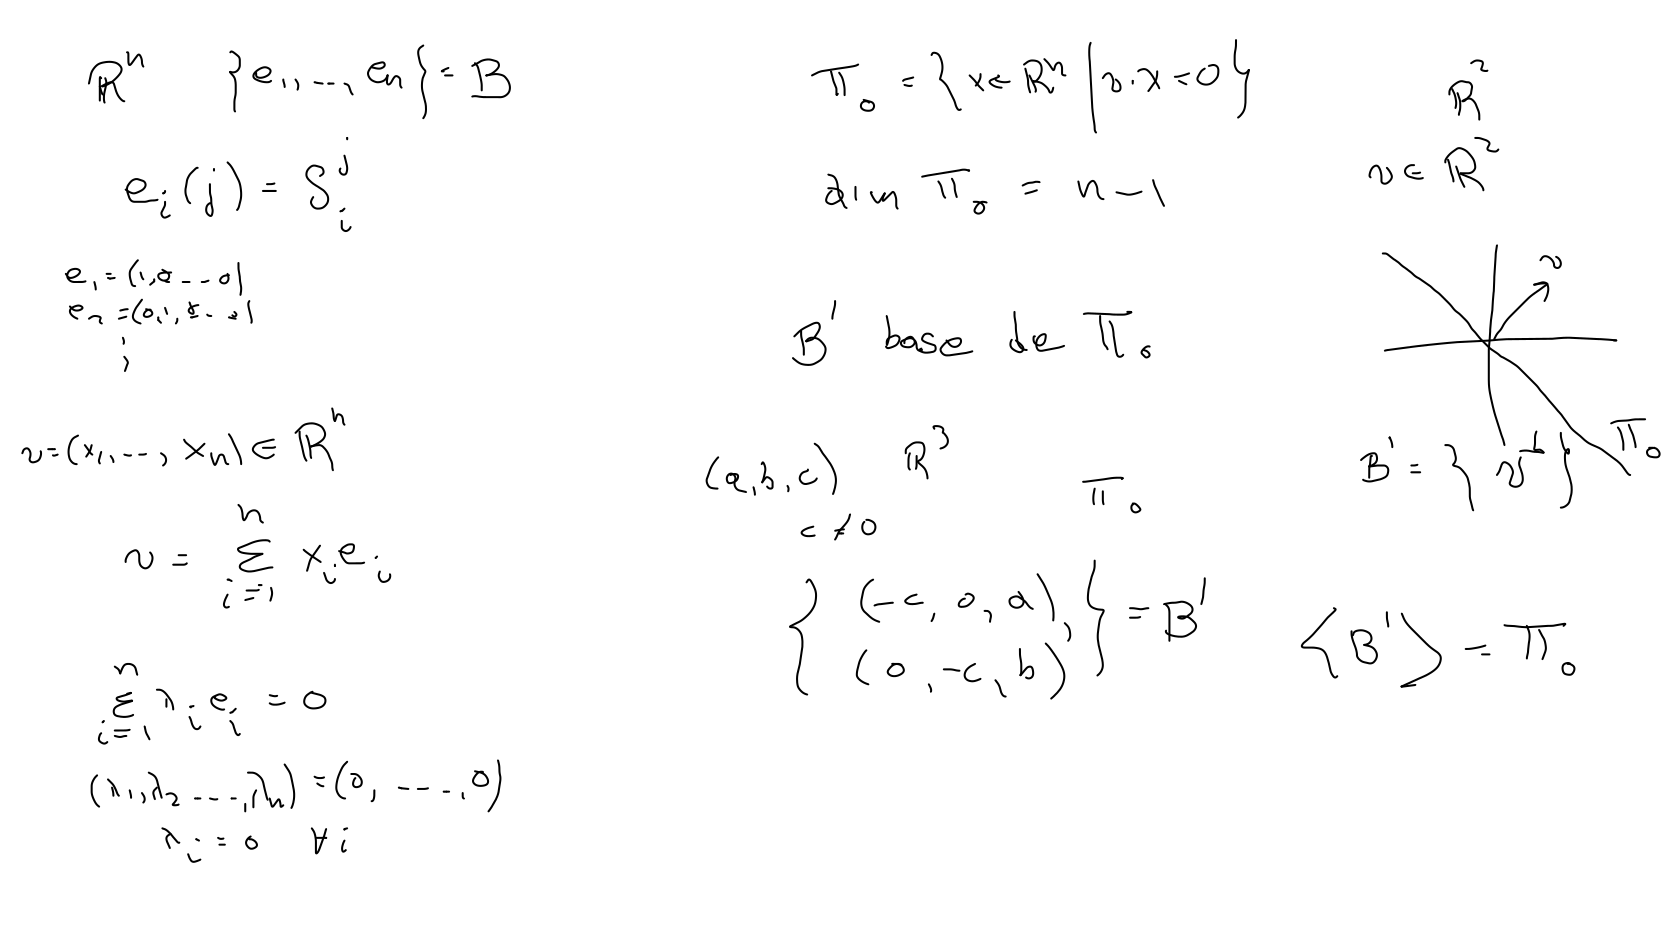 ℝⁿ {e₁, ..., eₙ} = B
eᵢ(j) = δᵢʲ
e₁ = (1,0 -- 0)
e₂ = (0,1, 0 - 0)
⋮
v = (x₁, --, xₙ) ∈ ℝⁿ
v = ∑ᵢ₌₁ⁿ xᵢeᵢ
∑ᵢ₌₁ⁿ λᵢeᵢ = 0
(λ₁, λ₂ ---, λₙ) = (0, ---, 0)
λᵢ = 0 ∀i
Π₀ = {x ∈ ℝⁿ | v·x = 0}
dim Π₀ = n-1
B' base de Π₀
(a,b,c) ℝ³ Π₀
c ≠ 0
{(-c, 0, a),
(0, -c, b)} = B'
ℝ²
v ∈ ℝ²
v
Π₀
B' = {v^⊥}
⟨B'⟩ = Π₀